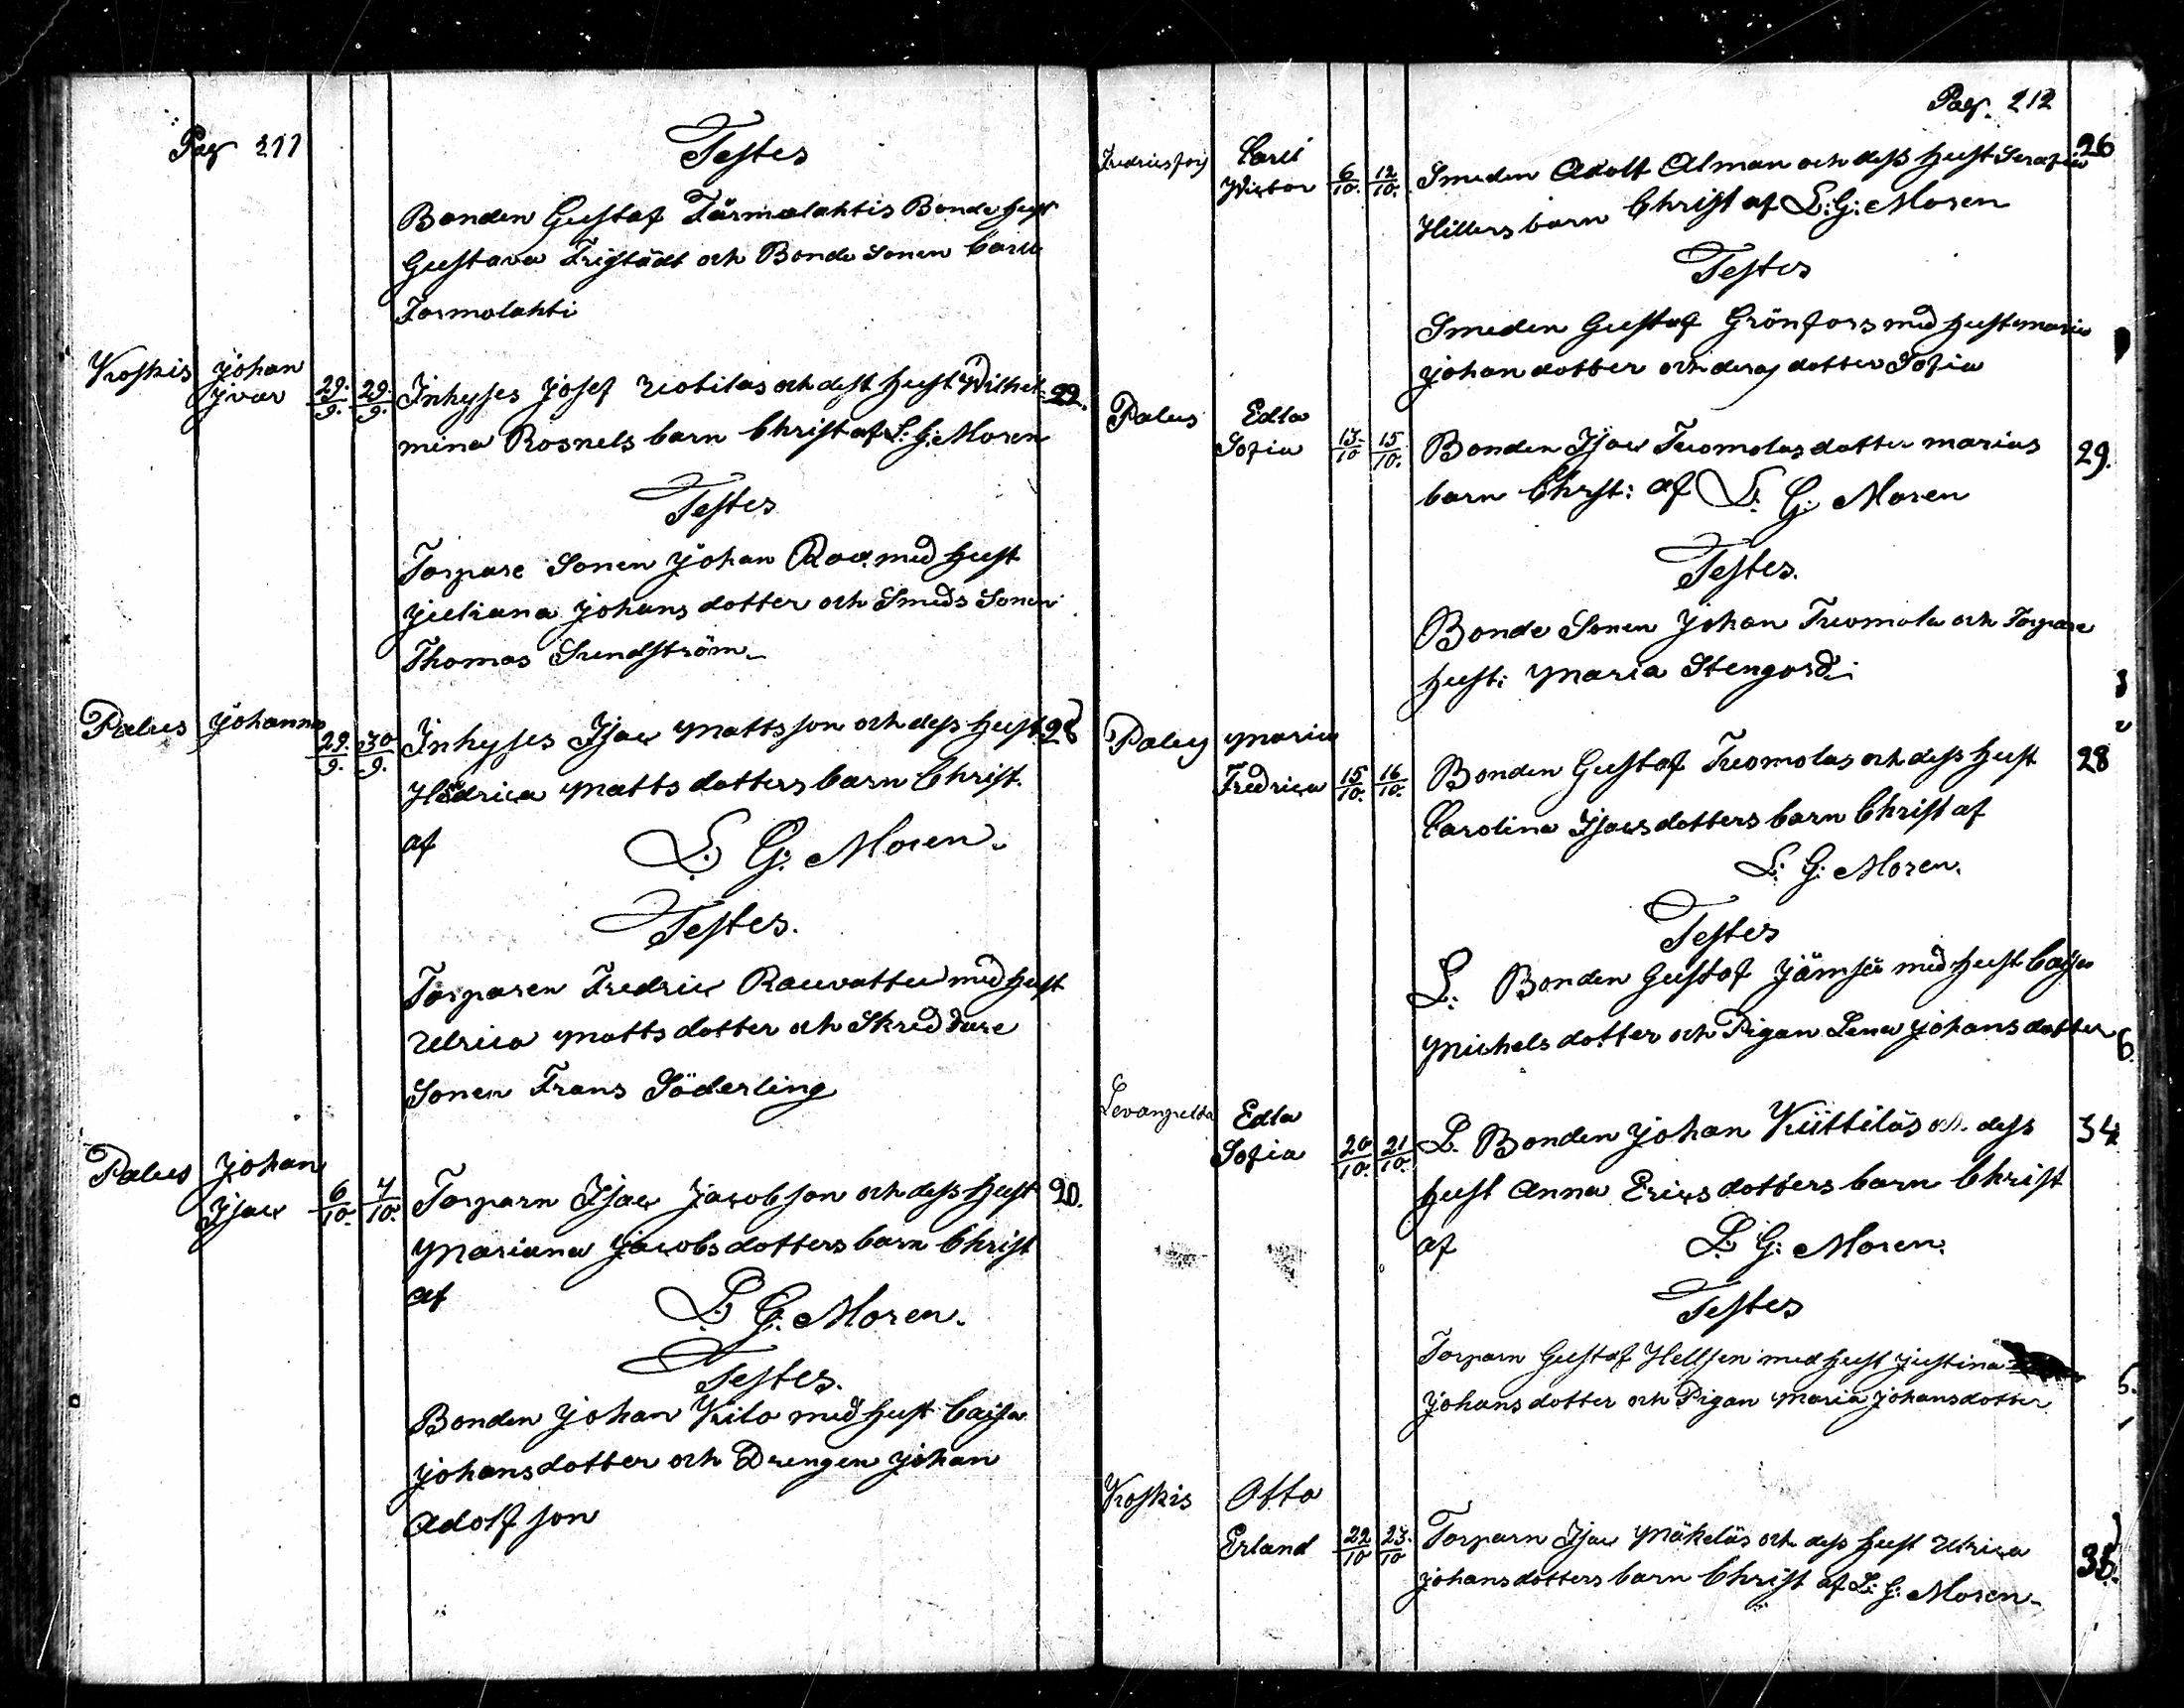 Pag 211
Testes
Bonden Gustaf Tärmälahtis Bonde hust
Gustava Frigtädt och Bonde Sonen Carll
Tormolahti
Koskis Johan Ivar 29/9. 29/9. Inhyses Josef Uotilas och dess hust Wilhel= 22.
mina Rosnels barn Christ af L: G: Moren
Testes
Torpare Sonen Johan Roos med hust
Juliana Johans dotter och Smeds Sonen
Thomas Sundström
Palus Johanna 29/9. 30/9. Inhyses Isac Mattsson och dess hust 28
Hedrica Matts dotters barn Christ.
af L: G: Moren.
Testes.
Torparen Fredric Rauvattu med hust
Ulrica Matts dotter och Skreddare
Sonen Frans Söderling
Palus Johan
Isac 6/10. 7/10. Torparn Isac Jacobson och dess hust 20.
Mariana Jacobs dotters barn Christ
af L: G: Moren.
Testes.
Bonden Johan Kilo med hust Caisa
Johansdotter och Drengen Johan
Adolfson
Pag. 212
Fredricsfors Carll
Wictor 6/10. 12/10. Smeden Adolf Alman och dess hust Serafia 26
Hillers barn Christ af L: G: Moren
Testes
Smeden Gustaf Grönfors med hust Maria
Johan dotter och deras dotter Sofia
Palus Edla
Sofia 13/10 15/10. Bonden Isac Tuomolas dotter Marias 29.
barn Christ: af L: G: Moren
Testes.
Bonde Sonen Johan Tuomola och Torpare
hust: Maria Stengord:
Palus Maria
Fredrica 15/10. 16/10. Bonden Gustaf Tuomolas och dess hust 28
Carolina Isacsdotters barn Christ af
L: G: Moren.
Testes
L: Bonden Gustaf Jämsä med hust Caisa
Michels dotter och Pigan Lena Johansdotter
Levanpelto Edla
Sofia 20/10. 21/10. L. Bonden Johan Küttiläs och dess 34
hust Anna Ericsdotters barn Christ
af L: G: Moren.
Testes
Torparn Gustaf Hellsen med hust Justina
Johans dotter och Pigan Maria Johansdotter
Koskis Otto
Erland 22/10 23/10 Torparn Isac Mäkeläs och dess hust Ulrica 35.
Johansdotters barn Christ af L: G: Moren